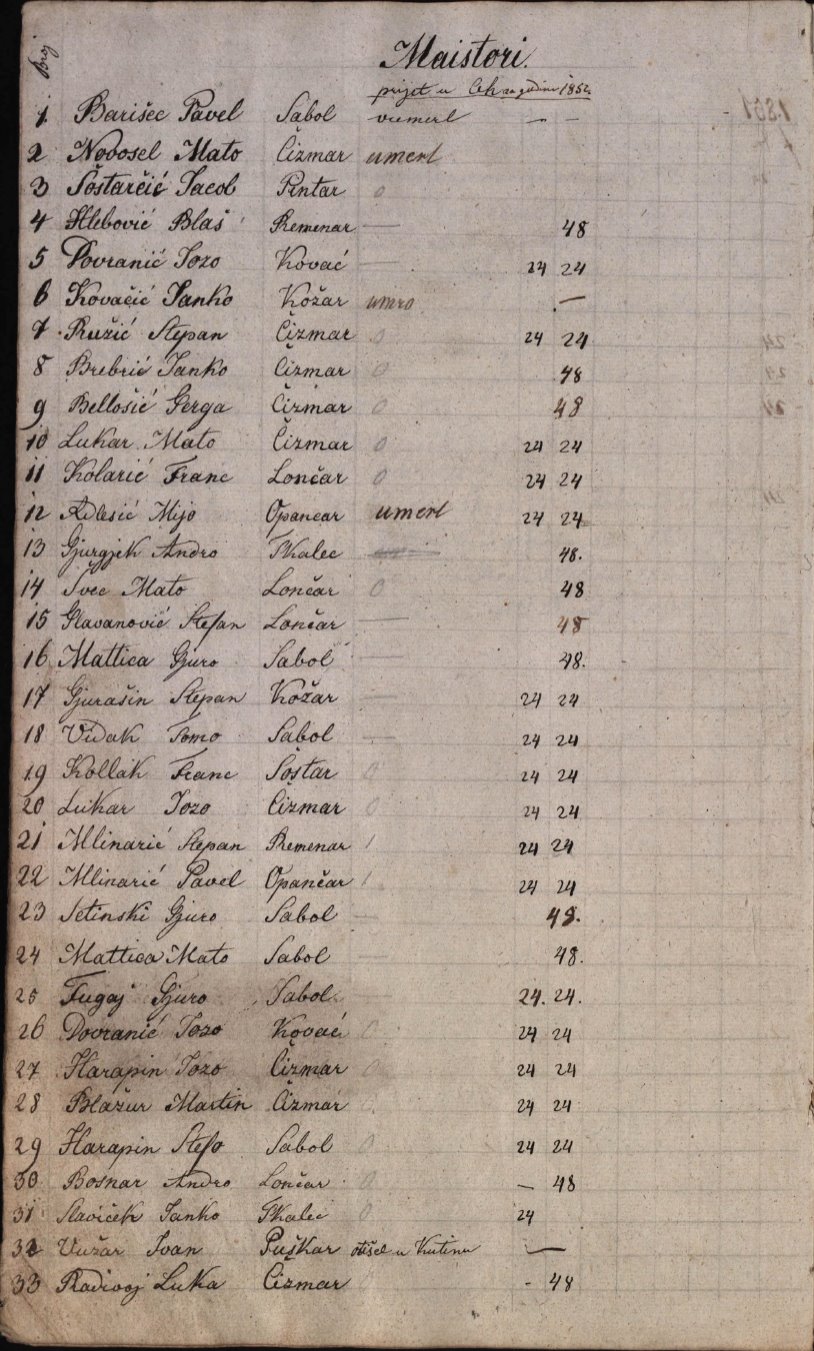 Broj
Maistori.
prijet u Ceh za godinu 1852.
1 Barišec Pavel Sabol vumerl — —
2 Novosel Mato Čizmar umerl
3 Šoštarčić Jacob Pintar 0
4 Hlebović Blaš Remenar — 48
5 Dovranić Jozo Kovać — 24 24
6 Kovačić Janko Kožar umro —
7 Ružić Stepan Čizmar 0 24 24
8 Brebrić Janko Čizmar 0 48
9 Bellošić Gerga Čizmar 0 48
10 Lukar Mato Čizmar 0 24 24
11 Kolarić Franc Lončar 0 24 24
12 Adlesić Mijo Opancar umerl 24 24
13 Gjurgjek Andro Tkalec 48.
14 Švec Mato Lončar 0 48
15 Glavanović Stefan Lončar — 48
16 Mattica Gjuro Sabol — 48.
17 Gjurašin Stepan Kožar — 24 24
18 Vidak Tomo Sabol — 24 24
19 Kollak Franc Šoštar 0 24 24
20 Lukar Jozo Cizmar 0 24 24
21 Mlinarić Stepan Remenar 1 24 24
22 Mlinarić Pavel Opančar 1 24 24
23 Setinski Gjuro Sabol — 48.
24 Mattica Mato Sabol — 48.
25 Fugaj Gjuro Sabol — 24. 24.
26 Dovranić Jozo Kovać 0 24 24
27 Harapin Jozo Čizmar 0 24 24
28 Blažur Martin Čizmar 0 24 24
29 Harapin Stefo Sabol 0 24 24
30 Bosnar Andro Lončar 0 — 48
31 Slaviček Janko Tkalec 0 24
32 Vužar Ivan Puškar otišel u Kutinu —
33 Radivoj Luka Čizmar 0 - 48